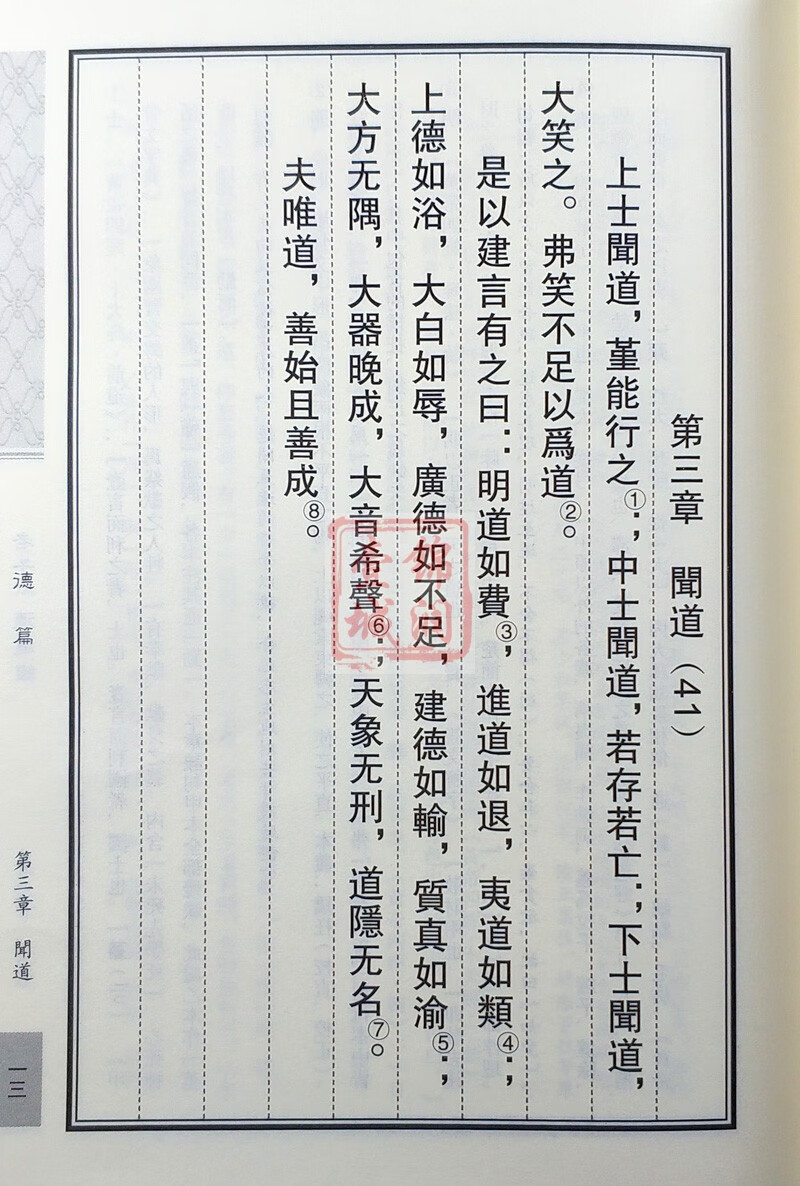 第三章　聞道（41）
上士聞道，堇能行之①；中士聞道，若存若亡；下士聞道，
大笑之。弗笑不足以爲道②。
是以建言有之曰：明道如費③，進道如退，夷道如類④；
上德如浴，大白如辱，廣德如不足，建德如輸，質真如渝⑤；
大方无隅，大器晚成，大音希聲⑥；天象无刑，道隱无名⑦。
夫唯道，善始且善成⑧。
德篇
第三章　聞道
一三